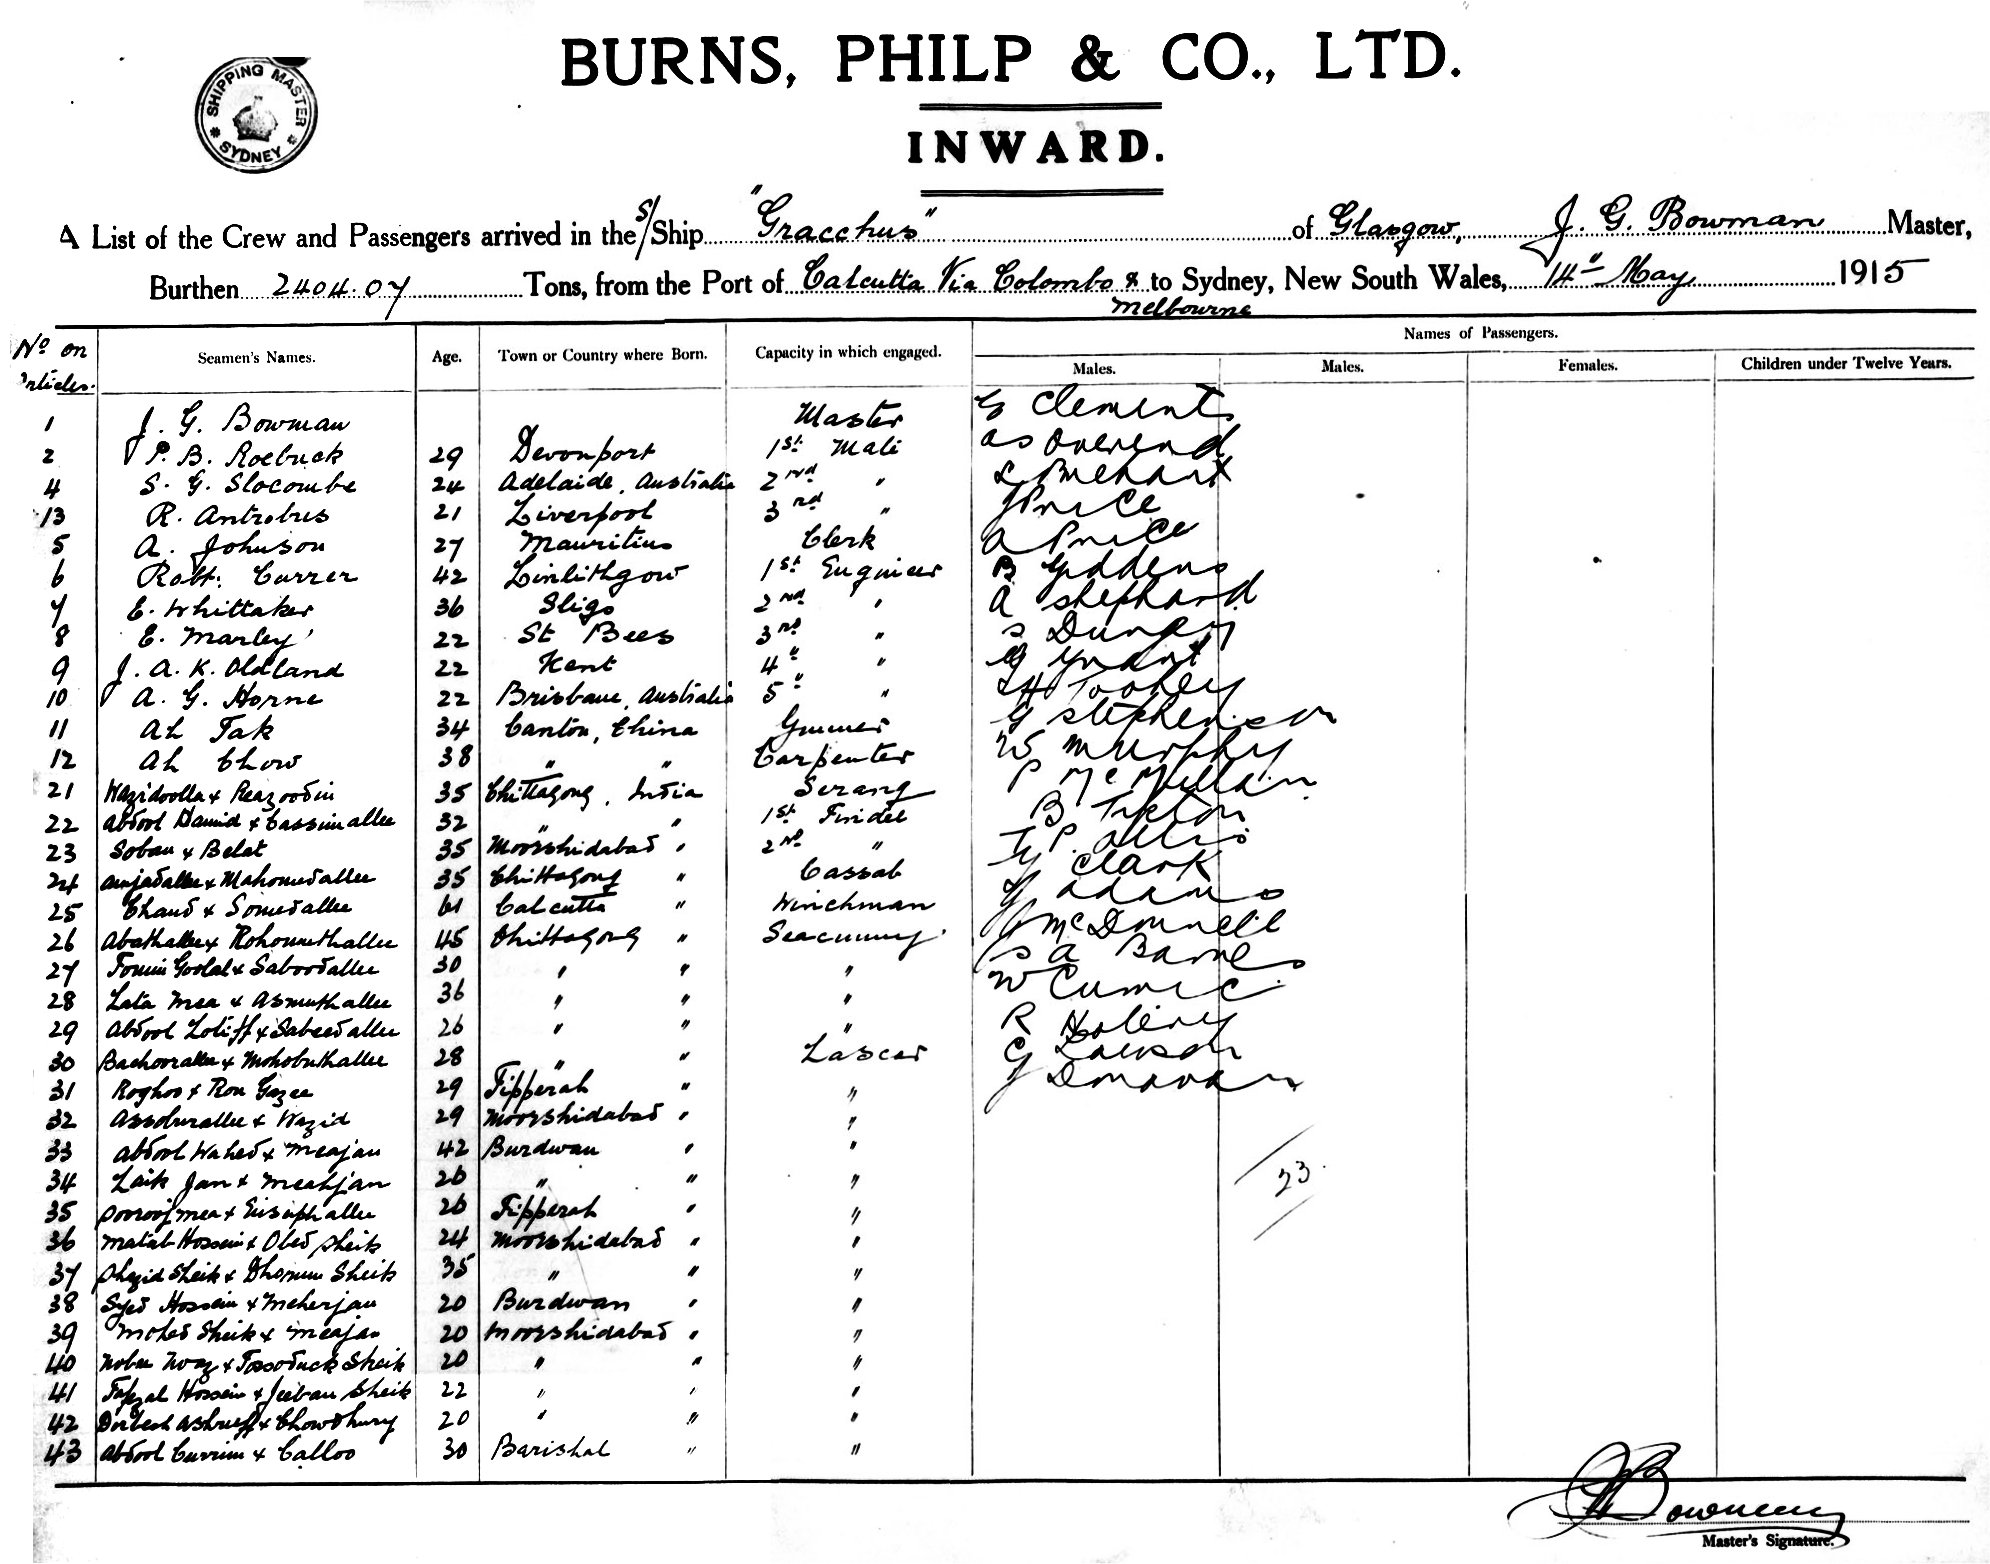 BURNS, PHILP & CO., LTD.
SHIPPING MASTER SYDNEY
INWARD.
A List of the Crew and Passengers arrived in the S/Ship "Gracchus" of Glasgow, J. G. Bowman Master,
Burthen 2404.07 Tons, from the Port of Calcutta Via Colombo & to Sydney, New South Wales, 14" May 1915
Melbourne
Names of Passengers.
No on Articles. Seamen's Names. Age. Town or Country where Born. Capacity in which engaged. Males. Males. Females. Children under Twelve Years.
1 J. G. Bowman Master G Clements
2 P. B. Roebuck 29 Devonport 1st Mate as Overend
4 S. G. Slocombe 24 Adelaide, Australia 2nd "
13 R. Antrobus 21 Liverpool 3rd " J Price
5 A. Johnson 27 Mauritius Clerk A Price
6 Robt. Currer 42 Linlithgow 1st Engineer B Giddens
7 E. Whittaker 36 Sligo 2nd " A Shephard
8 E. Marley 22 St Bees 3rd " S Dungey
9 J. A. K. Oldland 22 Kent 4" " G Grant
10 A. G. Horne 22 Brisbane, Australia 5" " Toohey
11 Ah Tak 34 Canton, China Gunner G Stephenson
12 Ah Chow 38 " " Carpenter W Murphy
21 Wazidoolla & Reazoodin 35 Chittagong, India Serang P McMillan
22 Abdool Hamid & Cassimallee 32 " " 1st Tindel B Tipton
23 Soban & Belat 35 Moorshidabad " 2nd "
24 Amjadallee & Mahomedallee 35 Chittagong " Cassab G Clark
25 Chand & Somedallee 61 Calcutta " Winchman G Adams
26 Abathallee & Rohomuthallee 45 Chittagong " Seacunny J McDonnell
27 Goolal & Saboodallee 30 " " " S A Barnes
28 Lala Mea & Asmuthallee 36 " " " W
29 Abdool Lotiff & Sabeedallee 26 " " " R
30 Bachoorallee & Mohobuthallee 28 " " Lascar G Dawson
31 Roghoo & Ron Gazee 29 Tipperah " " J Donovan
32 Assoburallee & Wazid 29 Moorshidabad " "
33 Abdool Wahed & Meajan 42 Burdwan " "
34 Laik Jan & Meahjan 26 " " " 23
35 Soroojmea & 26 Tipperah " "
36 Matab Hossein & Obed Sheik 24 Moorshidabad " "
37 Shazid Sheik & Dhonum Sheik 35 " " "
38 Syed Hossein & Meherjan 20 Burdwan " "
39 Mohed Sheik & Meajan 20 Moorshidabad " "
40 Nobee Noaz & Tossoduck Sheik 20 " " "
41 Tafzal Hossein & Jeeban Sheik 22 " " "
42 Dorbesh Ashruff & Chowdhury 20 " " "
43 Abdool Currim & Calloo 30 Barishal " "
J G Bowman
Master's Signature.